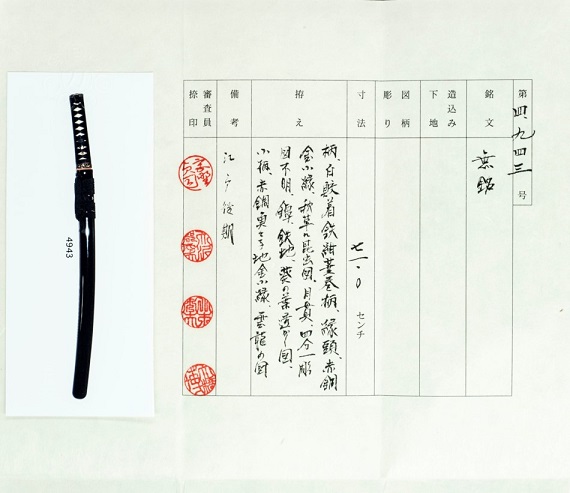 第四、九四三号
銘文 無銘
造込み 下地
図柄 彫り
寸法 七一・〇 センチ
拵え
柄、白鮫着鉄紺菱巻柄、縁頭、赤銅
金小縁、秋草に昆虫図、目貫、四分一彫
図不明、鐔、鉄地、葵の葉透かし図、
小柄、赤銅 地金小縁、雲龍の図
備考 江戸後期
審査員 捺印
4943